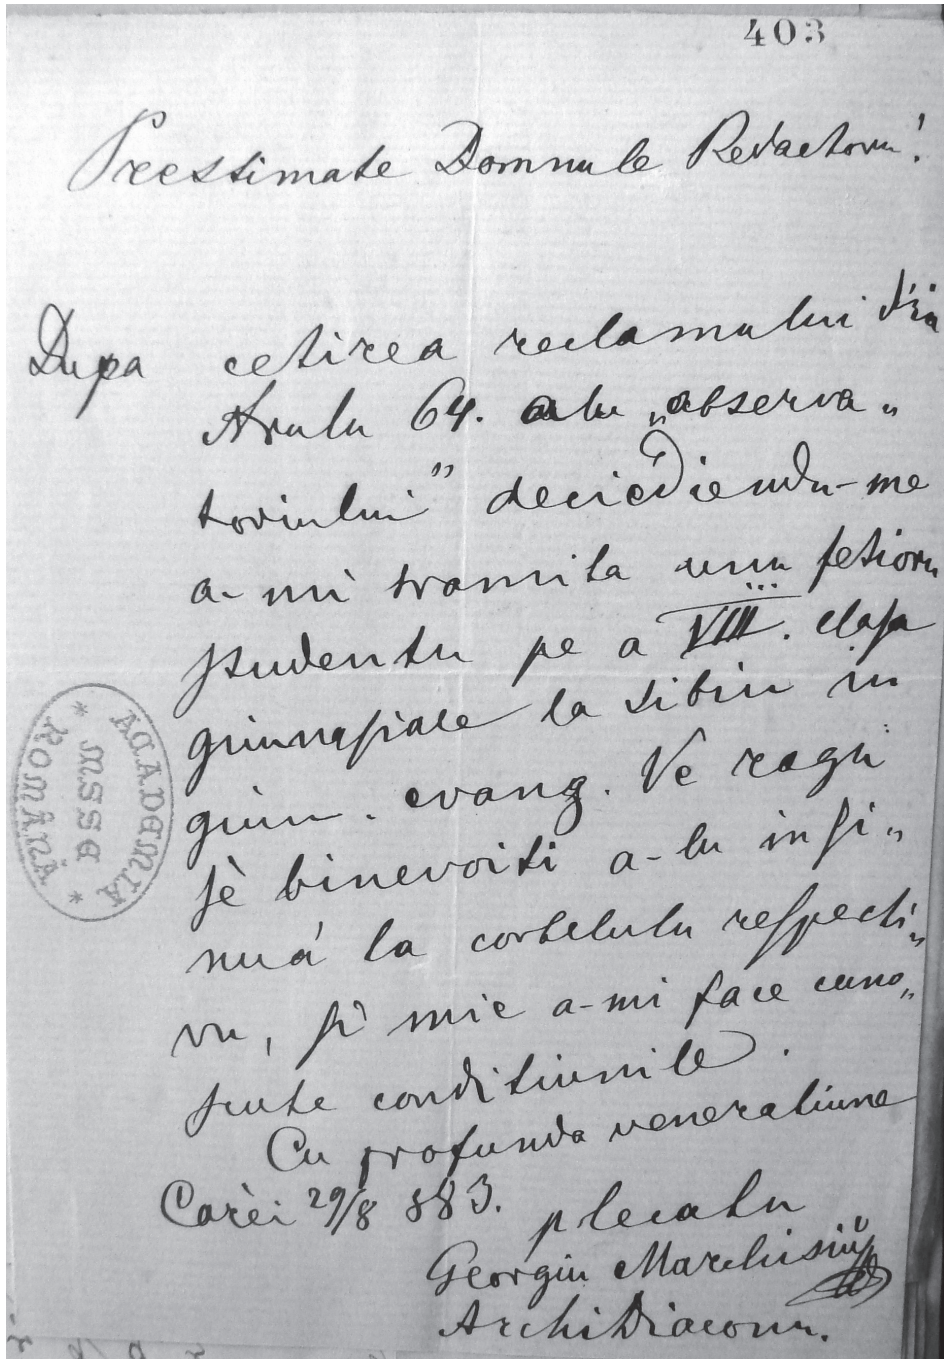 403
Preestimate Domnule Redactoru!
Dupa cetirea reclamului din
Nrulu 64. alu „observa„
toriului" deciediendu-me
a-mi tramite unu fetioru
studentu pe a VIII. clasa
gimnasiale la Sibiu in
gimn. evang. Ve rogu
sè binevoiti a-lu insi„
nuá la cortelulu respecti„
vu, si mie a-mi face cuno„
scute conditiunile.
Cu profunda veneratiune
Carèi 29/8 883.
plecatu
Georgiu Marchisiu
ArchiDiaconu.
ACADEMIA
MSSE
* ROMÂNĂ *